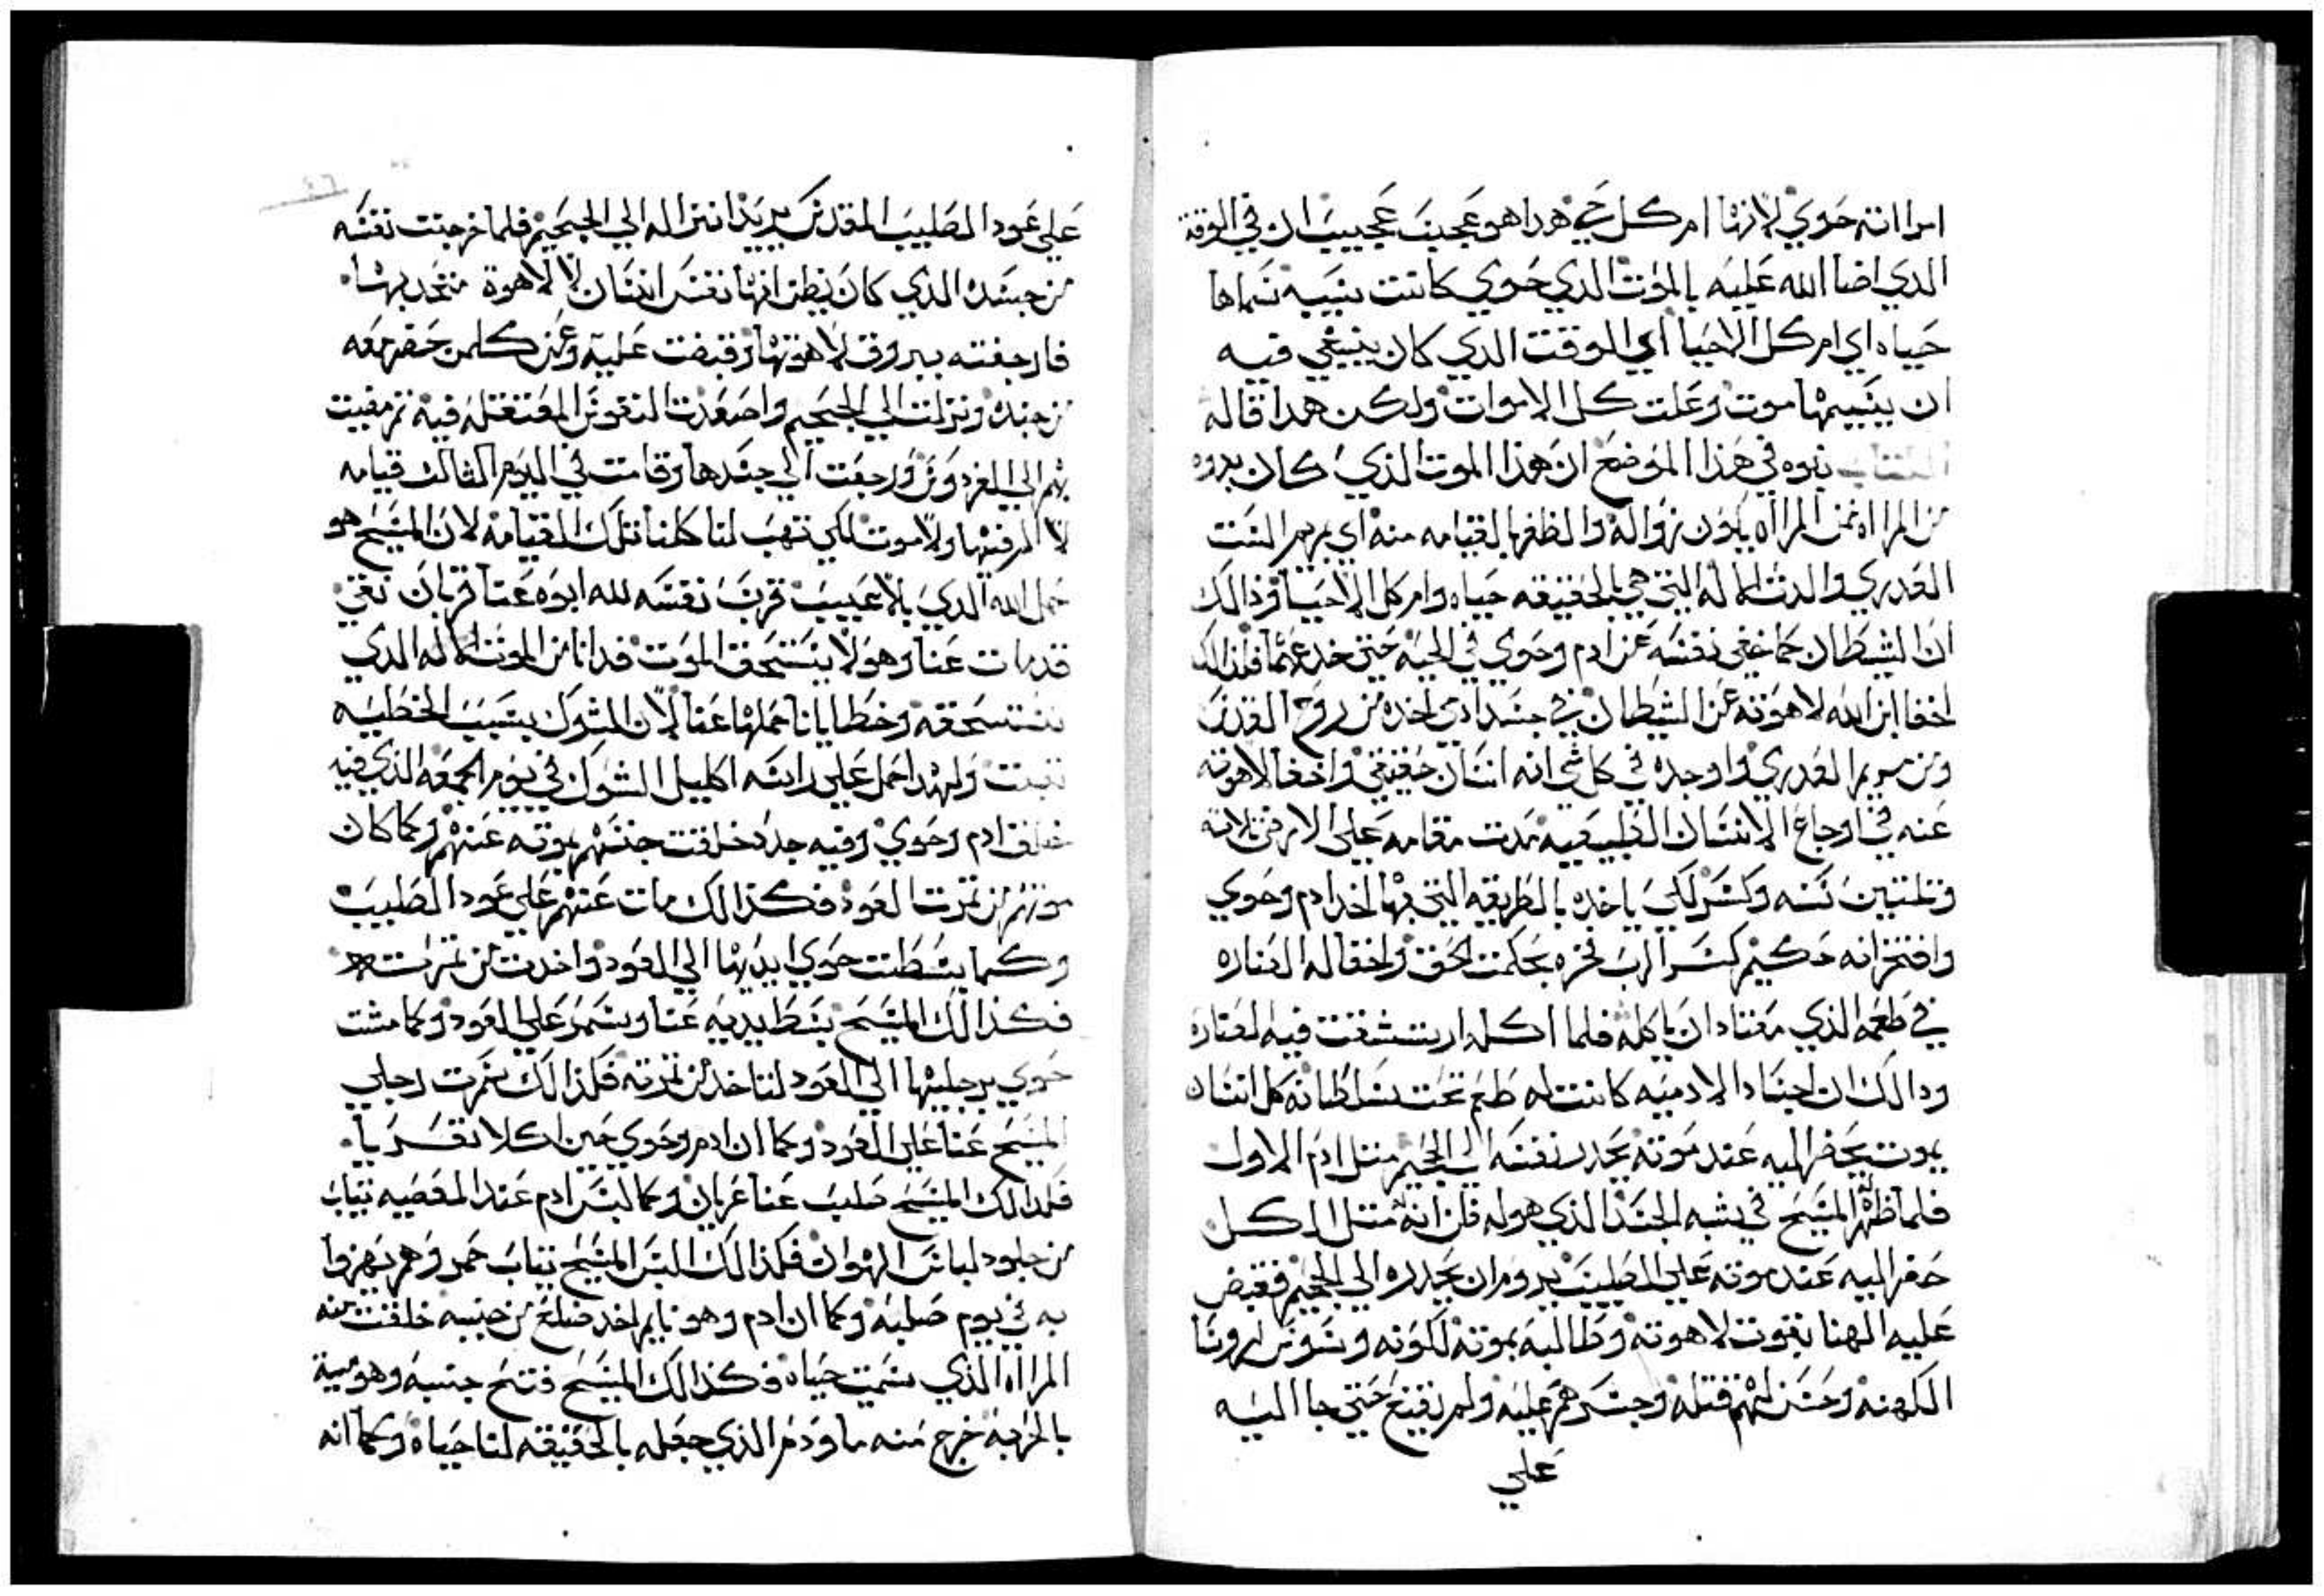 امراته حوي لانها ام كل حي هدا هو عجب عجيب ان في الوقت
الدي اضا الله عليه بالموت الدي حوي كانت بسببه سماها
حياه اي ام كل الاحيا اي الوقت الدي كان ينبغي فيه
ان يسميها موت وعلت كل الاموات ولكن هدا قاله
بنوه في هذا الموضع ان هذا الموت الذي كان بدوه
من المراه فمن المراه يكون زواله والظفر بالقيامه منه اي مريم الست
العدري والدت الاله التي هي بالحقيقه حياه وام كل الاحيا وذالك
ان الشيطان كما خفي نفسه عن ادم وحوي في الحيه حتي خدعهما فلذالك
اخفا ابن الله لاهوته عن الشيطان في جسد ادمي اخده من روح القدس
ومن مريم العدري واوجده في كل شي انه انسان حقيقي واخفا لاهوته
عنه في اوجاع الانسان الطبيعيه مدت مقامه علي الارض تلاته
وتلتين سنه وكسر لكي ياخده بالطريقه التي بها اخد ادم وحوي
وافتخر انه حكيم كسر الرب فخره بحكمت الحق واخفا له الصناره
في طعمه الذي معتاد ان ياكله فلما اكله ارتشقت فيه الصناره
ودالك ان اجساد الادميه كانت له طعم تحت سلطانه كل انسان
يموت يحضر اليه عند موته يحدر نفسه الي الجحيم متل ادم الاول
فلما ظهر المسيح في شبه الجسد الذي هو له ظن انه متل الكل
حضر اليه عند موته علي الصليب يروم ان يحدره الي الجحيم فقبض
عليه الهنا بقوت لاهوته وطالبه بموته لكونه وسوس لروسا
الكهنه وحسن لهم قتله وجسرهم عليه ولم يقنع حتي جا اليه
علي
علي عود الصليب المقدس يريد انزاله الي الجحيم فلما خرجت نفسه
من جسده الدي كان يظن انها نفس انسان لا لاهوة متحد بها
فارجفته ببروق لاهوتها وقبضت عليه وعن كلمن حضر معه
من جنده ونزلت الي الجحيم واصعدت النفوس المعتقله فيه ثم مضيت
بهم الي الفردوس ورجعت الي جسدها وقامت في اليوم الثالث قيامه
لا المرض لها ولا موت لكي تهب لنا كلنا تلك القيامه لان المسيح هو
حمل الله الدي بلا عيب قرب نفسه لله ابوه عنا قربان نقي
قد مات عنا وهو لا يستحق الموت فدانا من الموت الاله الدي
نستحقه وخطايانا حملها عنا لان الشوك بسبب الخطيه
نبت ولهدا حمل علي راسه اكليل الشوك في يوم الجمعه الذي فيه
خلق ادم وحوي وفيه جدد خلقت جنسهم بموته عنهم وكما كان
موتهم من تمرت العود فكذالك مات عنهم علي عود الصليب
وكما بسطت حوي ايديها الي العود واخدت من تمرته
فكذالك المسيح بسط يديه عنا وسمر علي العود وكما مشت
حوي برجليها الي العود لتاخد من تمرته فكذالك سمرت رجلي
المسيح عنا علي العود وكما ان ادم وحوي حين اكلا تعريا
فكذالك المسيح صلب عنا عريان وكما لبس ادم عند المعصيه تياب
من جلود لباس الهوان فكذالك البس المسيح تياب حمر وهم يهزوا
به في يوم صلبه وكما ان ادم وهو نايم اخد ضلع من جنبه خلقت منه
المراه الذي سميت حياه فكذالك المسيح فتح جنبه وهو ميت
بالحربه خرج منه ما ودم الذي جعله بالحقيقه لنا حياه وكما انه